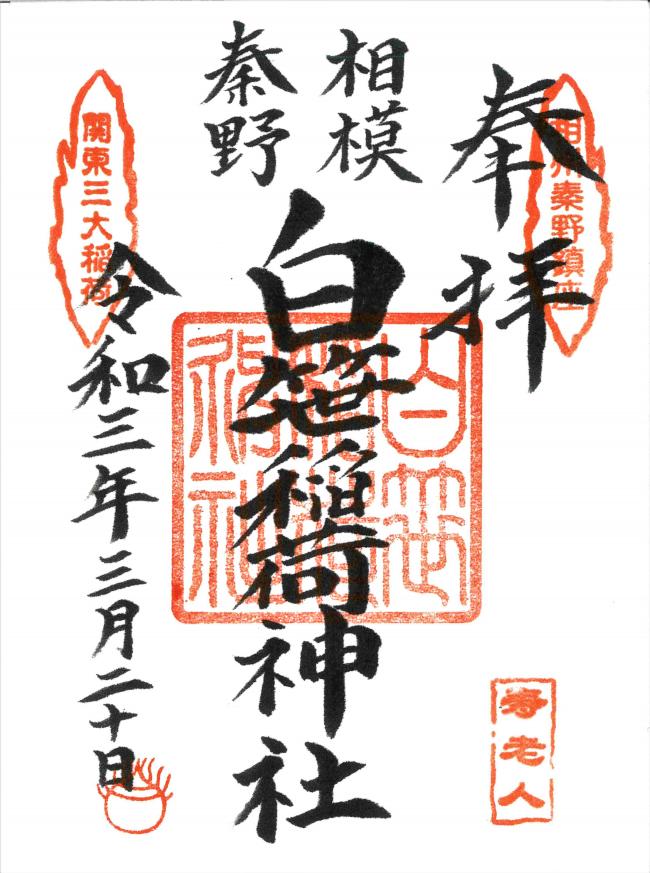 奉拝
相州秦野鎮座
相模
秦野
白笹稲荷神社
白笹稲荷神社
関東三大稲荷
令和三年三月二十日
寿老人